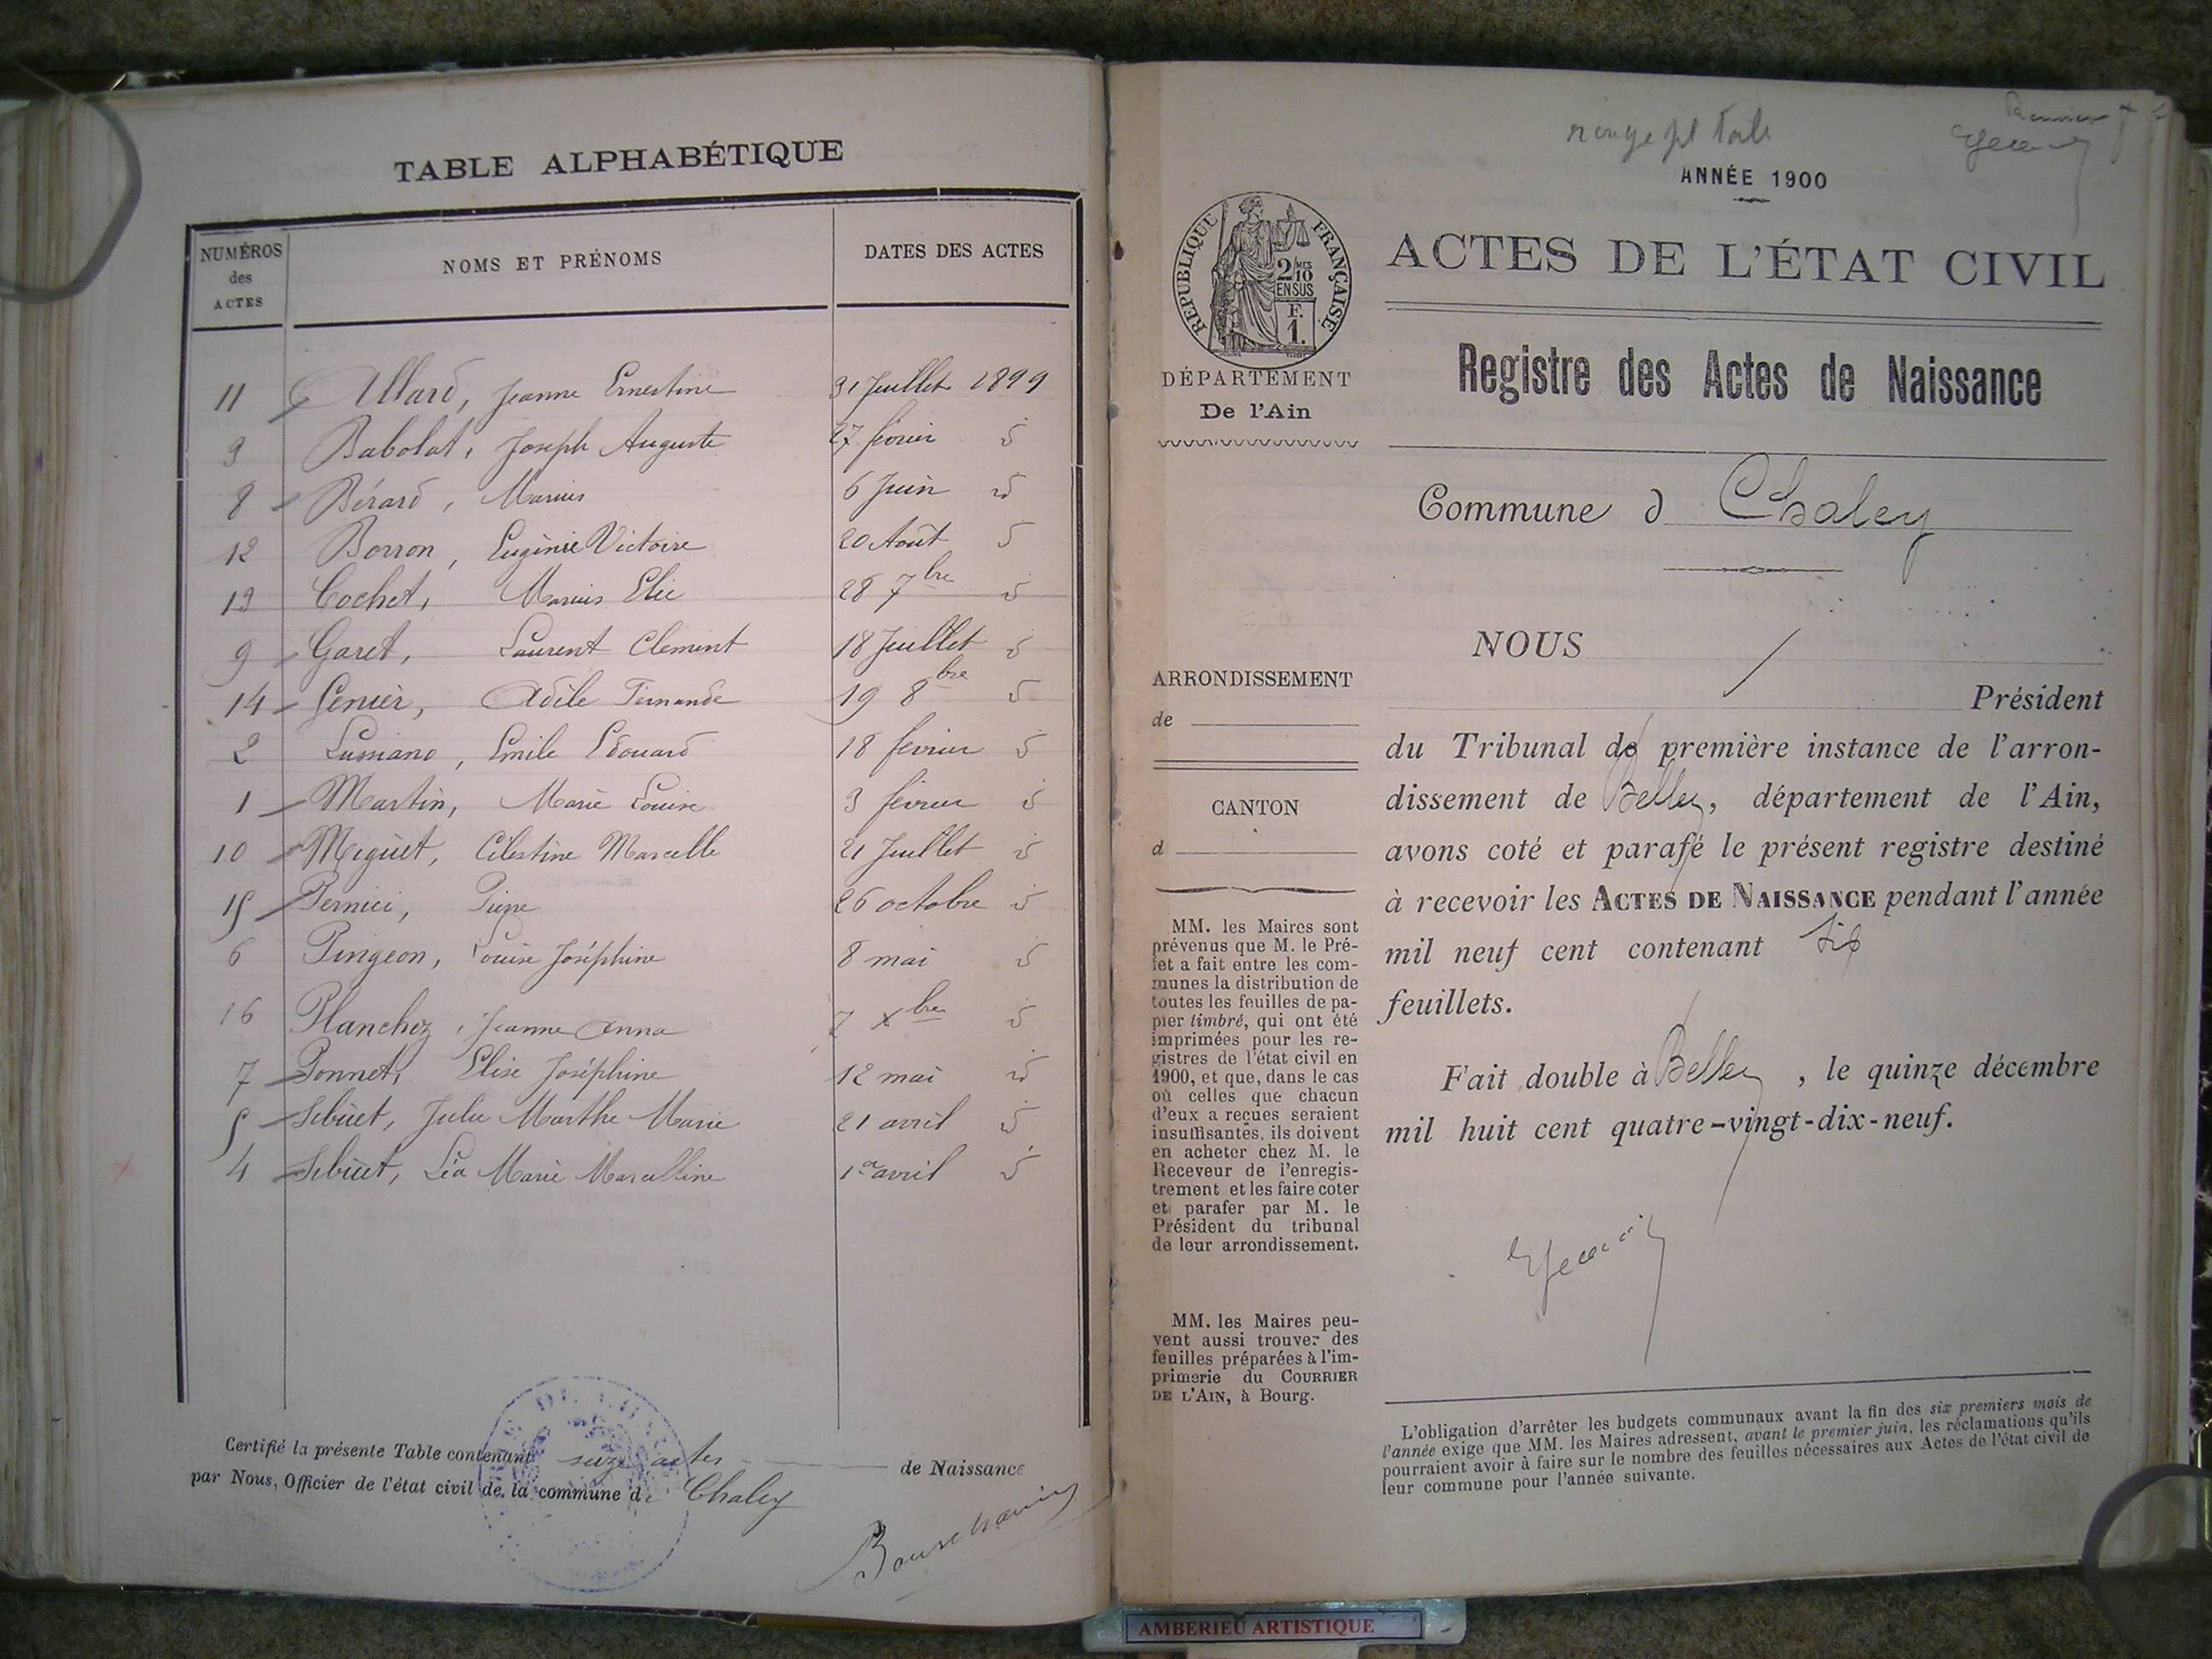 TABLE ALPHABÉTIQUE
NUMÉROS des ACTES NOMS ET PRÉNOMS DATES DES ACTES
11 Allard, Jeanne Ernestine 31 Juillet 1899
Babolat, Joseph Auguste 27 février id
8 Bérard, Marius 6 Juin id
12 Borron, Eugènie Victoire 20 Août id
Cochet, Marius Elie 28 7bre id
9 Garet, Laurent Clement 18 Juillet id
14 Genier, Adèle Fernande 19 8bre id
2 Lussiano, Emile Edouard 18 fevrier id
1 Martin, Marie Louise 3 février id
10 Miguet, Célestine Marcelle 21 Juillet id
15 Pernici, 26 octobre id
6 Pingeon, Louise Joséphine 8 mai id
16 Planchoz, Jeanne Anna 7 xbre id
7 Ponnet, Elise Joséphine 12 mai id
5 Sibuet, Julie Marthe Marie 21 avril id
4 Sibuet, Léa Marie Marcelline 1er avril id
Certifié la présente Table contenant seize actes de Naissance
par Nous, Officier de l'état civil de la commune de Chaley
ANNÉE 1900
RÉPUBLIQUE FRANÇAISE
2 MES 10 EN SUS
F. 1.
DÉPARTEMENT
De l'Ain
ARRONDISSEMENT
de
CANTON
d
MM. les Maires sont
prévenus que M. le Pré-
fet a fait entre les com-
munes la distribution de
toutes les feuilles de pa-
pier timbré, qui ont été
imprimées pour les re-
gistres de l'état civil en
1900, et que, dans le cas
où celles que chacun
d'eux a reçues seraient
insuffisantes, ils doivent
en acheter chez M. le
Receveur de l'enregis-
trement et les faire coter
et parafer par M. le
Président du tribunal
de leur arrondissement.
MM. les Maires peu-
vent aussi trouver des
feuilles préparées à l'im-
primerie du COURRIER
DE L'AIN, à Bourg.
ACTES DE L'ÉTAT CIVIL
Registre des Actes de Naissance
Commune d Chaley
NOUS
Président
du Tribunal de première instance de l'arron-
dissement de Belley, département de l'Ain,
avons coté et parafé le présent registre destiné
à recevoir les ACTES DE NAISSANCE pendant l'année
mil neuf cent contenant six
feuillets.
Fait double à Belley, le quinze décembre
mil huit cent quatre-vingt-dix-neuf.
L'obligation d'arrêter les budgets communaux avant la fin des six premiers mois de
l'année exige que MM. les Maires adressent, avant le premier juin, les réclamations qu'ils
pourraient avoir à faire sur le nombre des feuilles nécessaires aux Actes de l'état civil de
leur commune pour l'année suivante.
AMBERIEU ARTISTIQUE